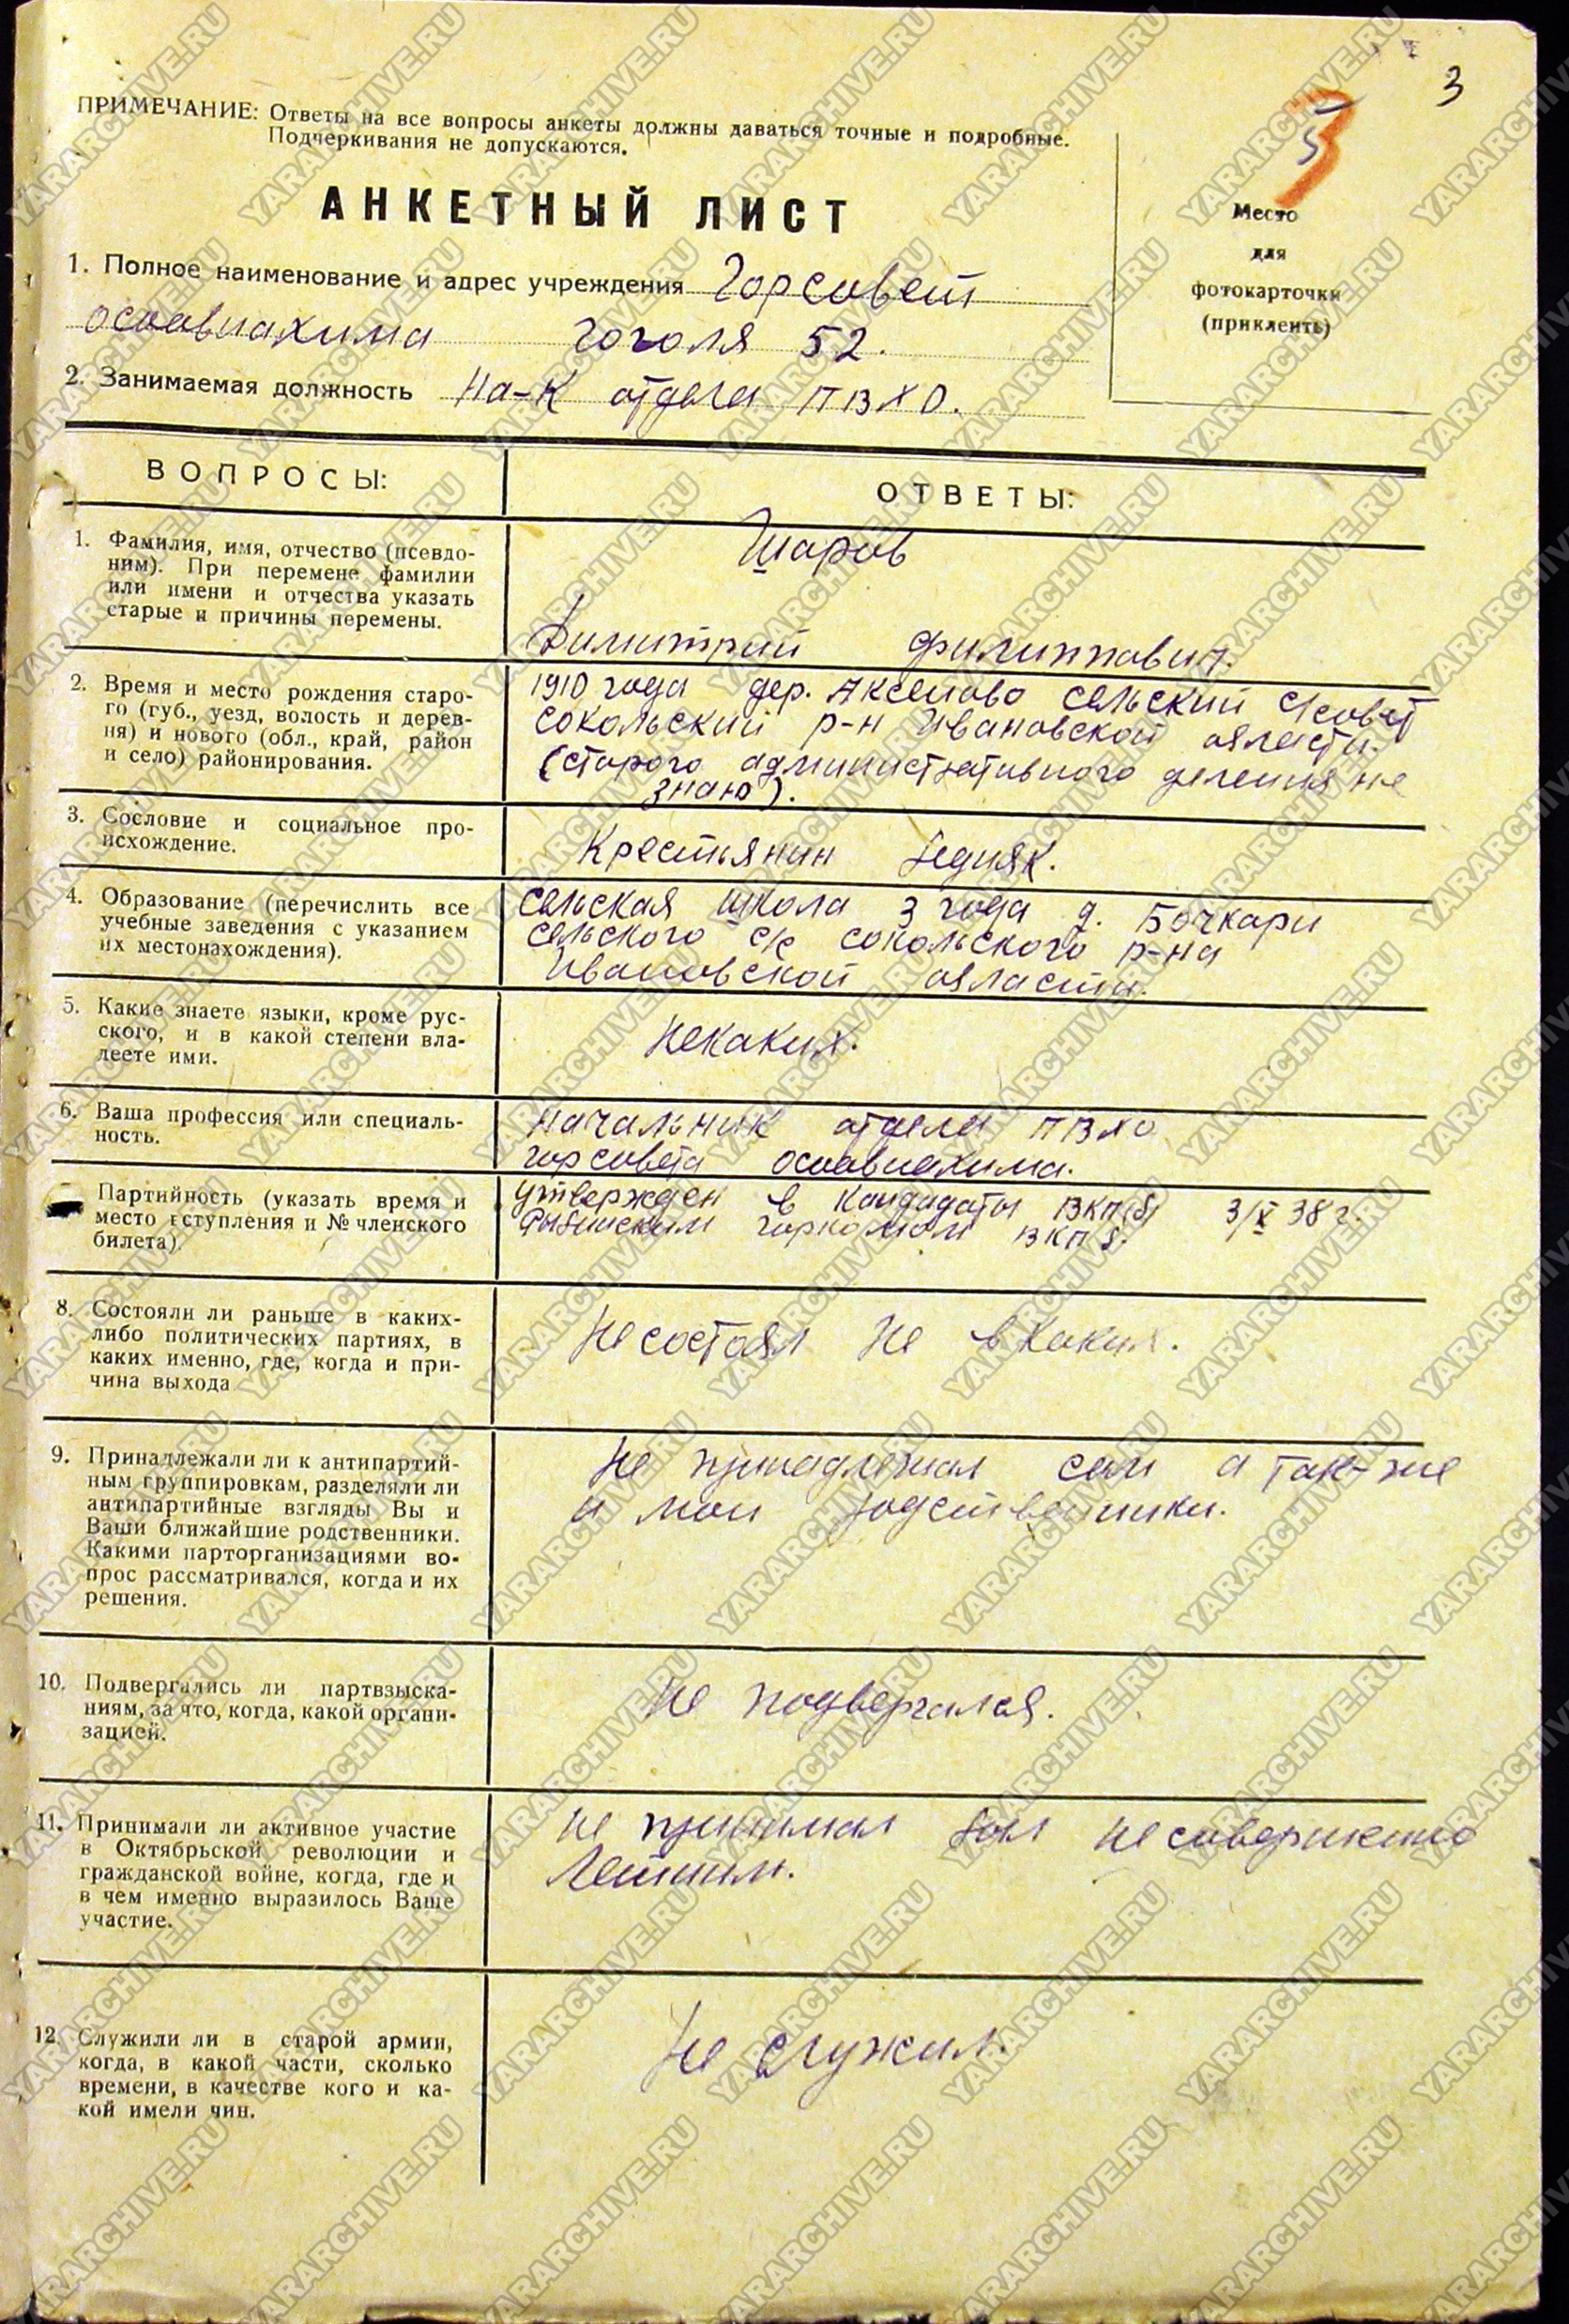 3
3
5
ПРИМЕЧАНИЕ: Ответы на все вопросы анкеты должны даваться точные и подробные.
Подчеркивания не допускаются.
АНКЕТНЫЙ ЛИСТ
Место
для
фотокарточки
(приклеить)
1. Полное наименование и адрес учреждения Горсовет
осоавиахима гоголя 52.
2. Занимаемая должность На-к отдела ПВХО.
ВОПРОСЫ:
ОТВЕТЫ:
1. Фамилия, имя, отчество (псевдо-
ним). При перемене фамилии
или имени и отчества указать
старые и причины перемены.
Шаров
Димитрий Филиппович.
2. Время и место рождения старо-
го (губ., уезд, волость и дерев-
ня) и нового (обл., край, район
и село) районирования.
1910 года дер. Аксеново сельский с/совет
сокольский р-н Ивановской области.
(старого административного деления не
знаю).
3. Сословие и социальное про-
исхождение.
Крестьянин бедняк.
4. Образование (перечислить все
учебные заведения с указанием
их местонахождения).
Сельская школа 3 года д. Бочкари
сельского с/с сокольского р-на
Ивановской области.
5. Какие знаете языки, кроме рус-
ского, и в какой степени вла-
деете ими.
Некаких.
6. Ваша профессия или специаль-
ность.
Начальник отдела ПВХО
горсовета осоавиахима.
Партийность (указать время и
место вступления и № членского
билета).
Утвержден в кандидаты ВКП(б) 3/X 38 г.
Рыбинским горкомом ВКПб.
8. Состояли ли раньше в каких-
либо политических партиях, в
каких именно, где, когда и при-
чина выхода
Не состоял не в каких.
9. Принадлежали ли к антипартий-
ным группировкам, разделяли ли
антипартийные взгляды Вы и
Ваши ближайшие родственники.
Какими парторганизациями во-
прос рассматривался, когда и их
решения.
Не принадлежал сам а так-же
и мои родственники.
10. Подвергались ли партвзыска-
ниям, за что, когда, какой органи-
зацией.
Не подвергался.
11. Принимали ли активное участие
в Октябрьской революции и
гражданской войне, когда, где и
в чем именно выразилось Ваше
участие.
Не принимал был не совершенно
летним.
12. Служили ли в старой армии,
когда, в какой части, сколько
времени, в качестве кого и ка-
кой имели чин.
Не служил.
YARARCHIVE.RU